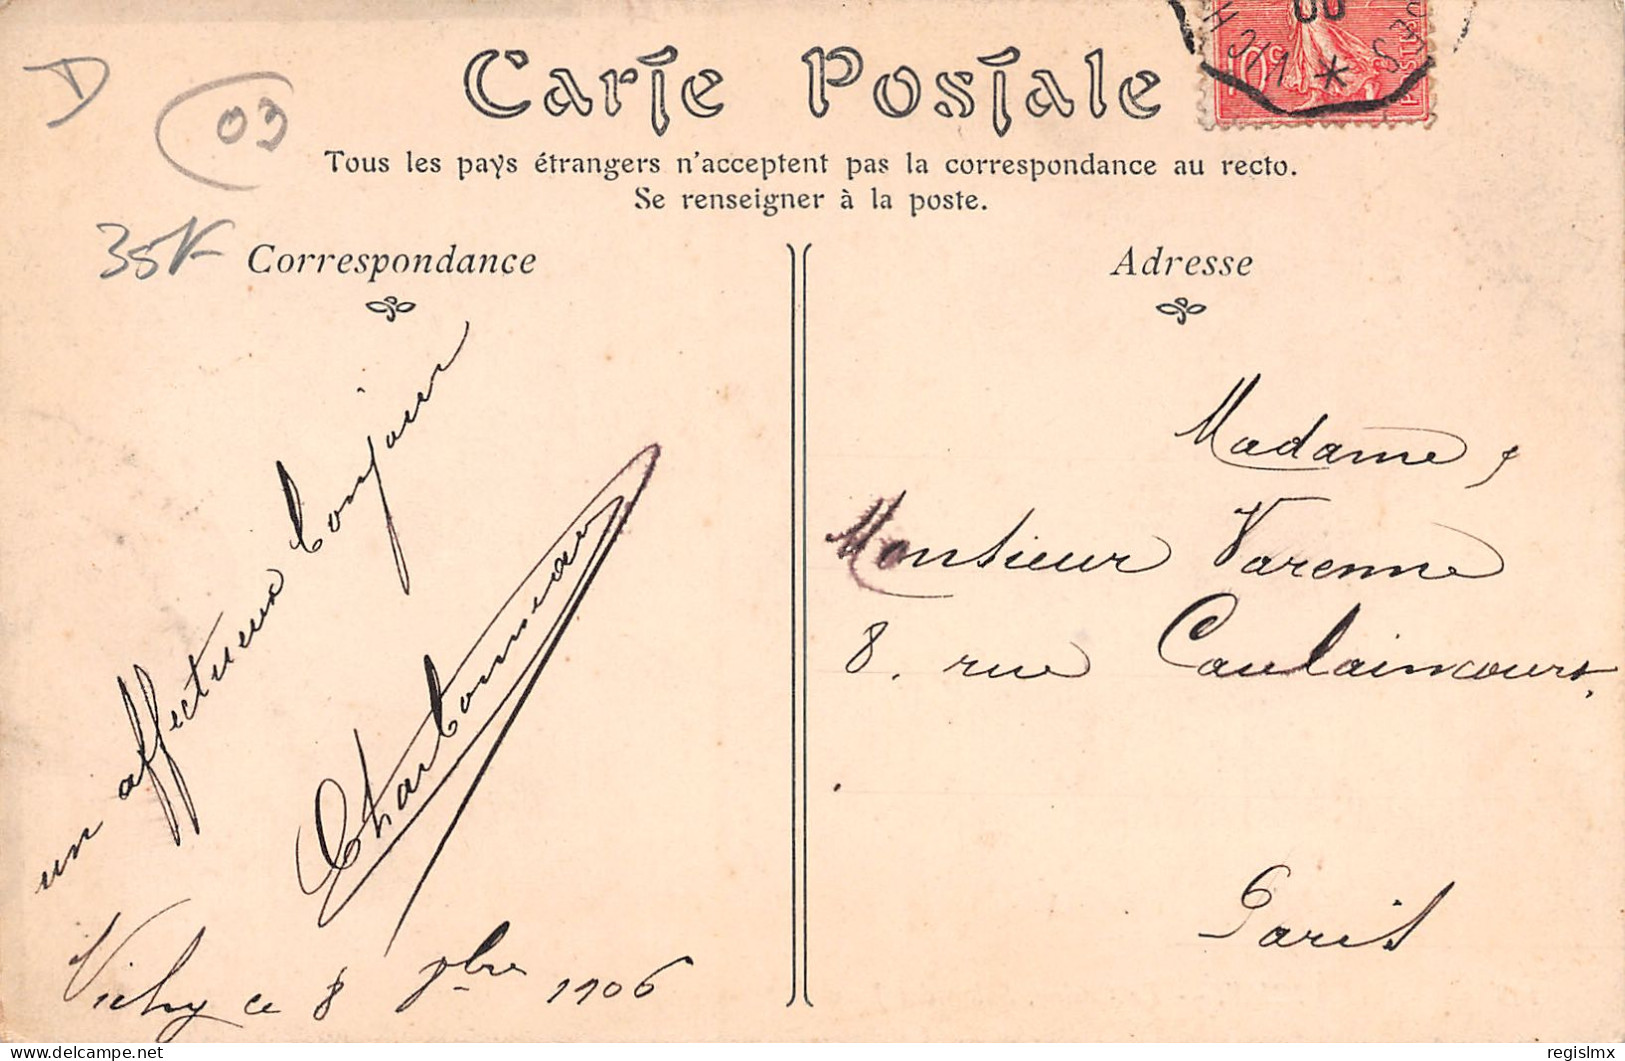 D
03
35F
Carte Postale
Tous les pays étrangers n'acceptent pas la correspondance au recto.
Se renseigner à la poste.
Correspondance
un affectueux bonjour
Vichy ce 8 7bre 1906
Adresse
Madame &
Monsieur Varenne
8. rue Caulaincourt.
Paris
10
VICH
delcampe.net
regislmx